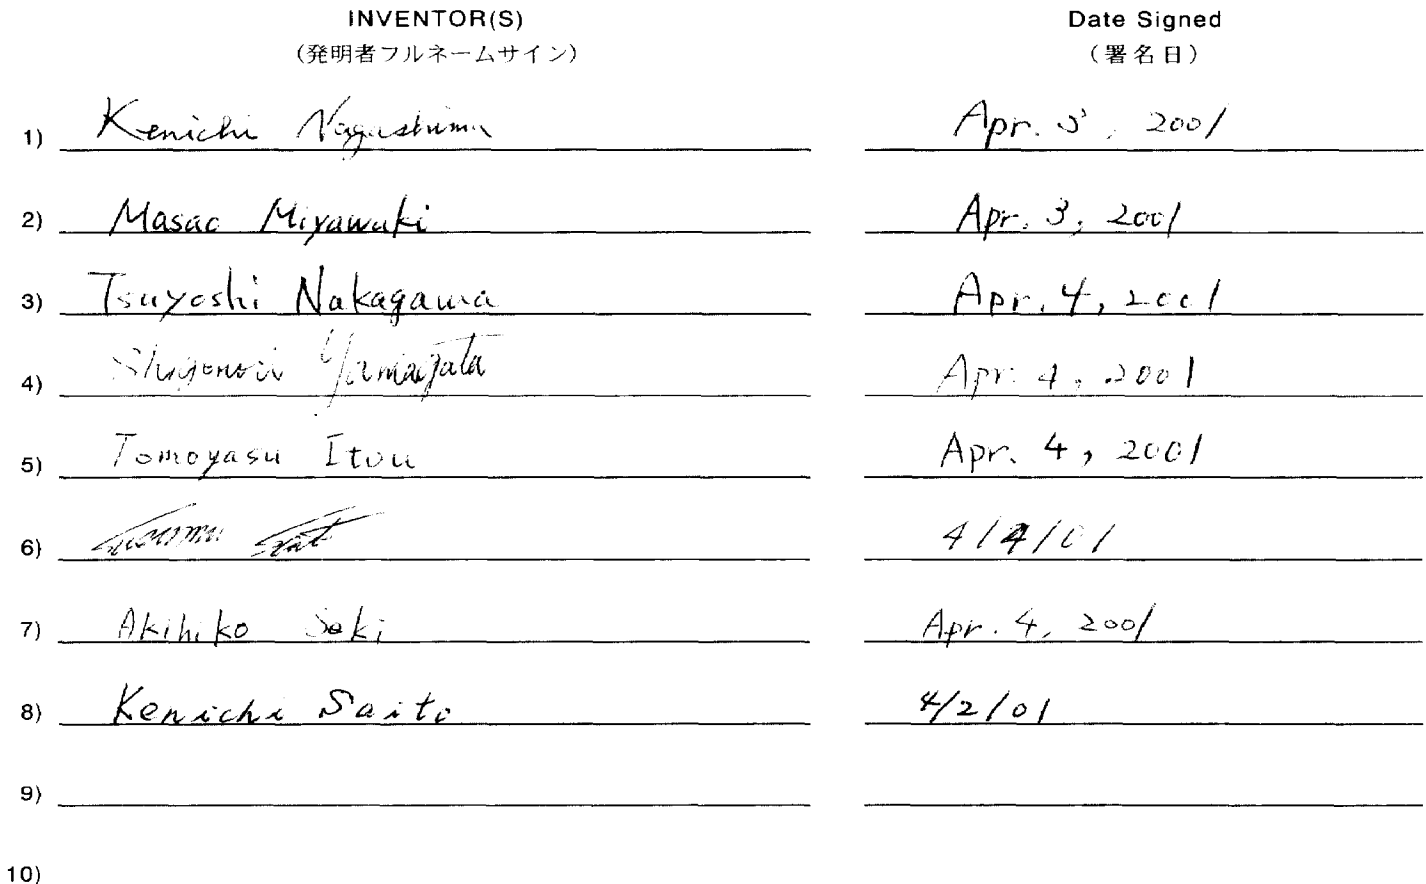 INVENTOR(S) Date Signed
(発明者フルネームサイン) (署名日)
1) Kenichi Nagashima Apr. 3, 2001
2) Masao Miyawaki Apr. 3, 2001
3) Tsuyoshi Nakagawa Apr. 4, 2001
4) Shigenori Yamagata Apr. 4, 2001
5) Tomoyasu Itou Apr. 4, 2001
6) 4/4/01
7) Akihiko Seki Apr. 4, 2001
8) Kenichi Saito 4/2/01
9)
10)